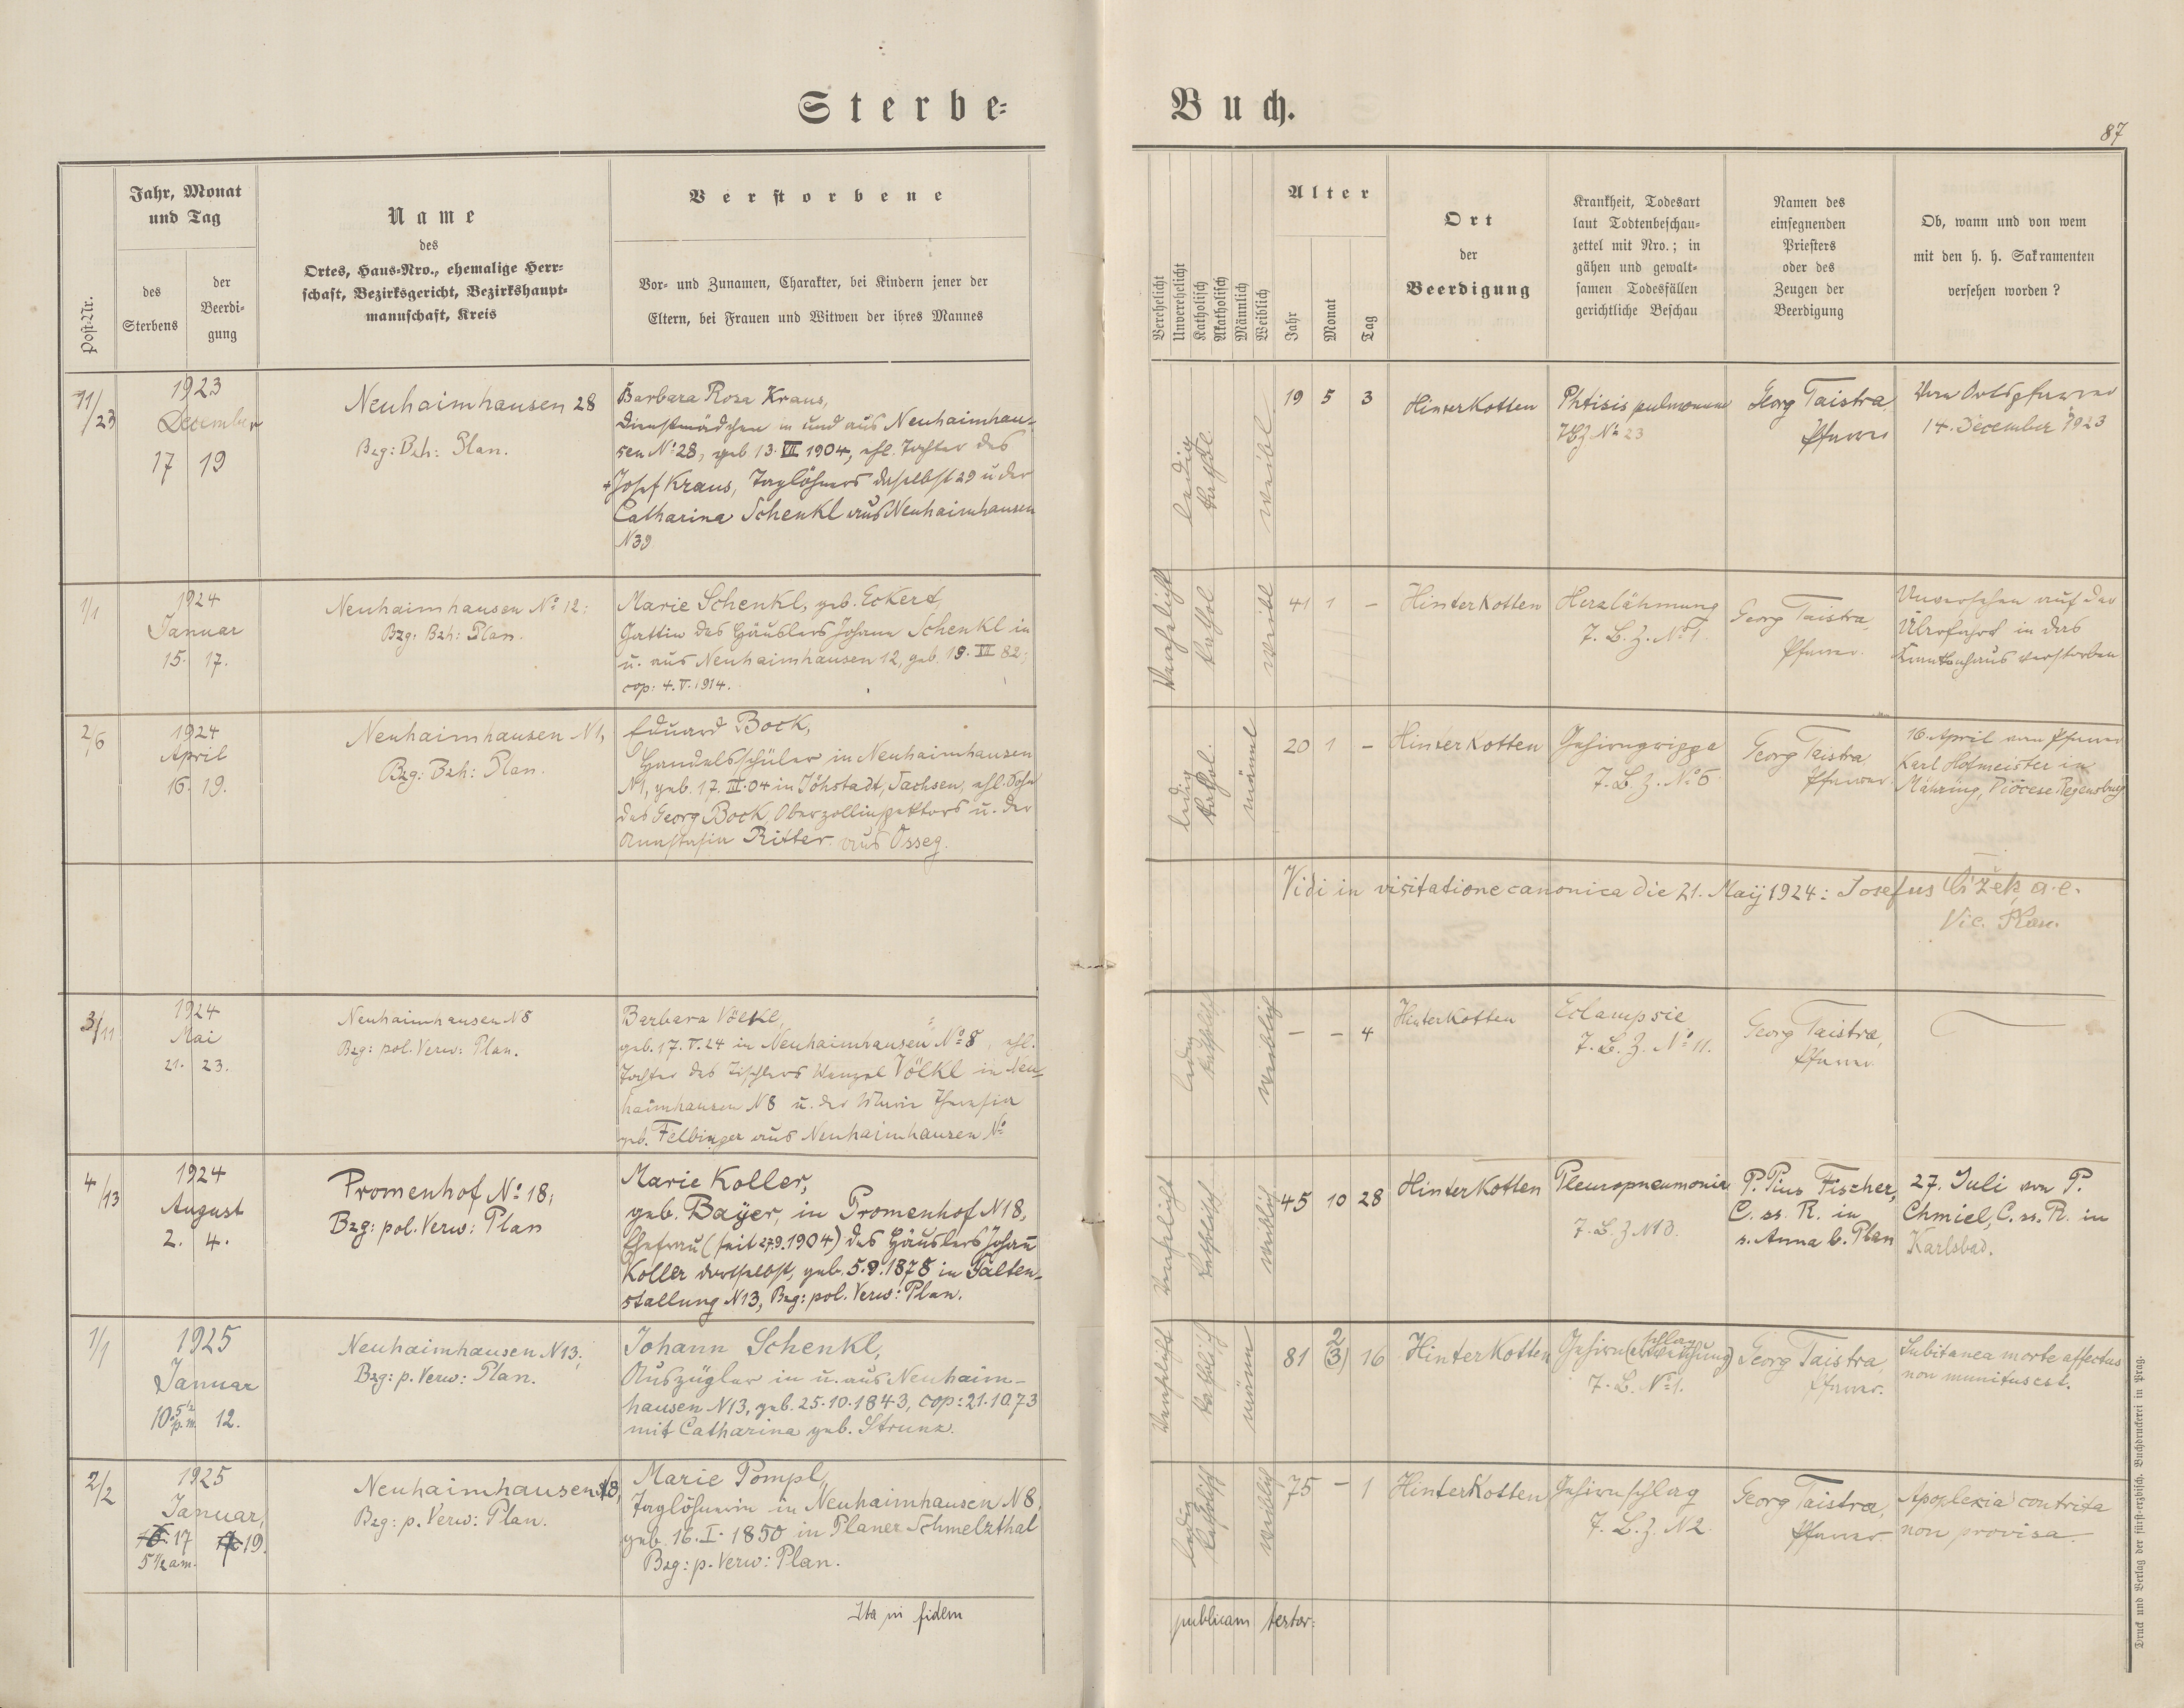 Sterbe-
Buch.
87
Post-Nr.
Jahr, Monat
und Tag
des
Sterbens
der
Beerdi-
gung
Name
des
Ortes, Haus-Nro., ehemalige Herr-
schaft, Bezirksgericht, Bezirkshaupt-
mannschaft, Kreis
Verstorbene
Vor- und Zunamen, Charakter, bei Kindern jener der
Eltern, bei Frauen und Witwen der ihres Mannes
Verehelicht
Unverehelicht
Katholisch
Akatholisch
Männlich
Weiblich
Alter
Jahr
Monat
Tag
Ort
der
Beerdigung
Krankheit, Todesart
laut Todtenbeschau-
zettel mit Nro.; in
gähen und gewalt-
samen Todesfällen
gerichtliche Beschau
Namen des
einsegnenden
Priesters
oder des
Zeugen der
Beerdigung
Ob, wann und von wem
mit den h. h. Sakramenten
versehen worden?
11/23
1923
Dezember
17 19
Neuhaimhausen 28
Bzg: Bzh: Plan.
Barbara Rosa Kraus,
Dienstmädchen in und aus Neuhaimhau-
sen N° 28, geb 13. VII 1904, ehl. Tochter des
+ Josef Kraus, Taglöhners daselbst 29 u der
Catharina Schenkl aus Neuhaimhausen
N 39
ledig
kathol.
weibl
19 5 3
Hinterkotten
Phtisis pulmonum
TBZ N° 23
Georg Taistra
Pfarrer
Vom Ortspfarrer
14. December 1923
1/1
1924
Januar
15. 17.
Neuhaimhausen N° 12;
Bzg: Bzh: Plan.
Marie Schenkl, geb. Eckert,
Gattin des Häuslers Johann Schenkl in
u. aus Neuhaimhausen 12, geb. 19. 82;
cop: 4. V. 1914.
Verehelicht
kathol
weibl
41 1 –
Hinterkotten
Herzlähmung
T. B. Z. N° 1.
Georg Taistra,
Pfarrer.
Unversehen auf der
Überfahrt in das
Krankenhaus verstorben
2/6
1924
April
16. 19.
Neuhaimhausen N 1,
Bzg: Bzh: Plan.
Eduard Bock,
Handelsschüler in Neuhaimhausen
N 1, geb. 17. III. 04 in Jöhstadt, Sachsen, ehl. Sohn
des Georg Bock, Oberzollinspektors u. der
Anastasia Ritter aus Osseg.
ledig
kathol.
männl
20 1 –
Hinterkotten
Gehirngrippe
T. B. Z. N° 6
Georg Taistra,
Pfarrer.
16. April vom Pfarrer
Karl Hofmeister in
Mähring, Diöcese Regensburg
Vidi in visitatione canonica die 21. Maÿ 1924: Josefus Čížek, a. e.
Vic. Plan.
3/11
1924
Mai
21. 23.
Neuhaimhausen N 8
Bzg: pol. Verw: Plan.
Barbara Völkl,
geb. 17. V. 24 in Neuhaimhausen N° 8, ehl.
Tochter des Tischlers Wenzel Völkl in Neu-
haimhausen N 8 u. der Marie Theresia
geb. Felbinger aus Neuhaimhausen N°
ledig
katholisch
weiblich
– – 4
Hinterkotten
Eclampsie
T. B. Z. N° 11.
Georg Taistra,
Pfarrer.
4/13
1924
August
2. 4.
Promenhof N° 18;
Bzg: pol. Verw: Plan
Marie Koller,
geb. Baÿer, in Promenhof N 18,
Ehefrau (seit 27.9.1904) des Häuslers Johann
Koller dortselbst, geb. 5.9.1878 in Galten-
stallung N 13, Bzg: pol. Verw: Plan.
Verehelicht
katholisch
weiblich
45 10 28
Hinterkotten
Pleuropneumonie
T. B. Z N 13.
P. Pius Fischer,
C. ss. R. in
s. Anna b. Plan
27. Juli von P.
Chmiel, C. ss. R. in
Karlsbad.
1/1
1925
Januar
10. 5½ p. m. 12.
Neuhaimhausen N 13;
Bzg: p. Verw: Plan.
Johann Schenkl,
Auszügler in u. aus Neuhaim-
hausen N 13, geb. 25.10.1843, cop: 21.10.73
mit Catharina geb. Strunz.
Verehelicht
katholisch
männ
2
81 (3) 16
Hinterkotten
schlag
Gehirn(erweichung)
T. B. N° 1.
Georg Taistra,
Pfarrer.
Subitanea morte affectus
non munitus est.
2/2
1925
Januar,
16. 17 19.
5½ am.
Neuhaimhausen N 8,
Bzg: p. Verw: Plan.
Marie Pompl,
Taglöhnerin in Neuhaimhausen N 8,
geb. 16. I. 1850 in Planer Schmelzthal
Bzg: p. Verw: Plan.
ledig
katholisch
weiblich
75 – 1
Hinterkotten
Gehirnschlag
T. B. Z. N 2.
Georg Taistra,
Pfarrer.
Apoplexia contrita
non provisa.
Ita in fidem
publicam testor:
Druck und Verlag der fürst-erzbisch. Buchdruckerei in Prag.